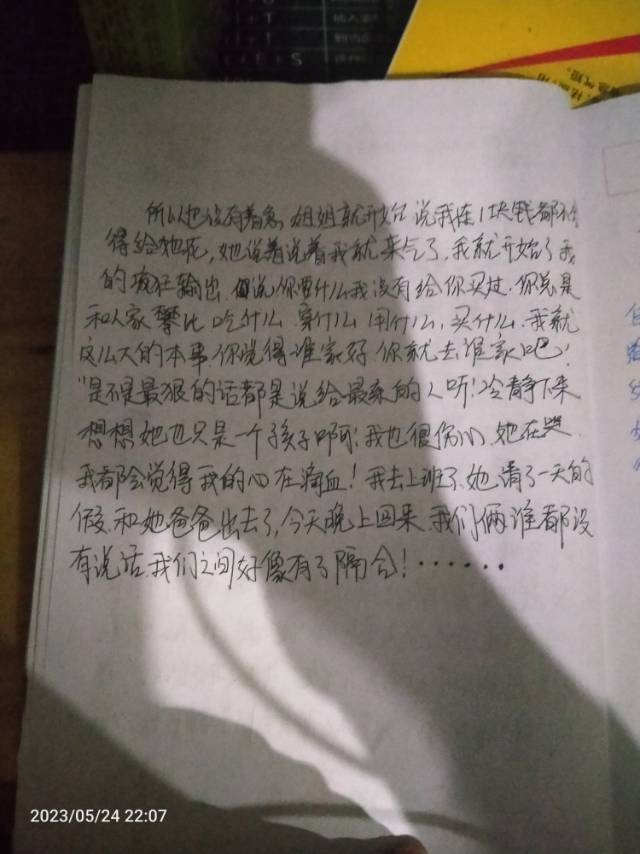 所以也没有着急,姐姐就开始说我连1块钱都不
得给她花,她说着说着我就来气了,我就开始了我
的疯狂输出,说你要什么我没有给你买过.你总是
和人家攀比吃什么,穿什么,用什么,买什么.我就
这么大的本事你觉得谁家好你就去谁家吧!
"是不是最狠的话都是说给最亲的人听!冷静下来
想想她也只是一个孩子啊!我也很伤心,她在哭
我都会觉得我的心在滴血!我去上班了,她请了一天的
假,和她爸爸出去了,今天晚上回来我们俩谁都没
有说话.我们之间好像有了隔合!······
2023/05/24 22:07